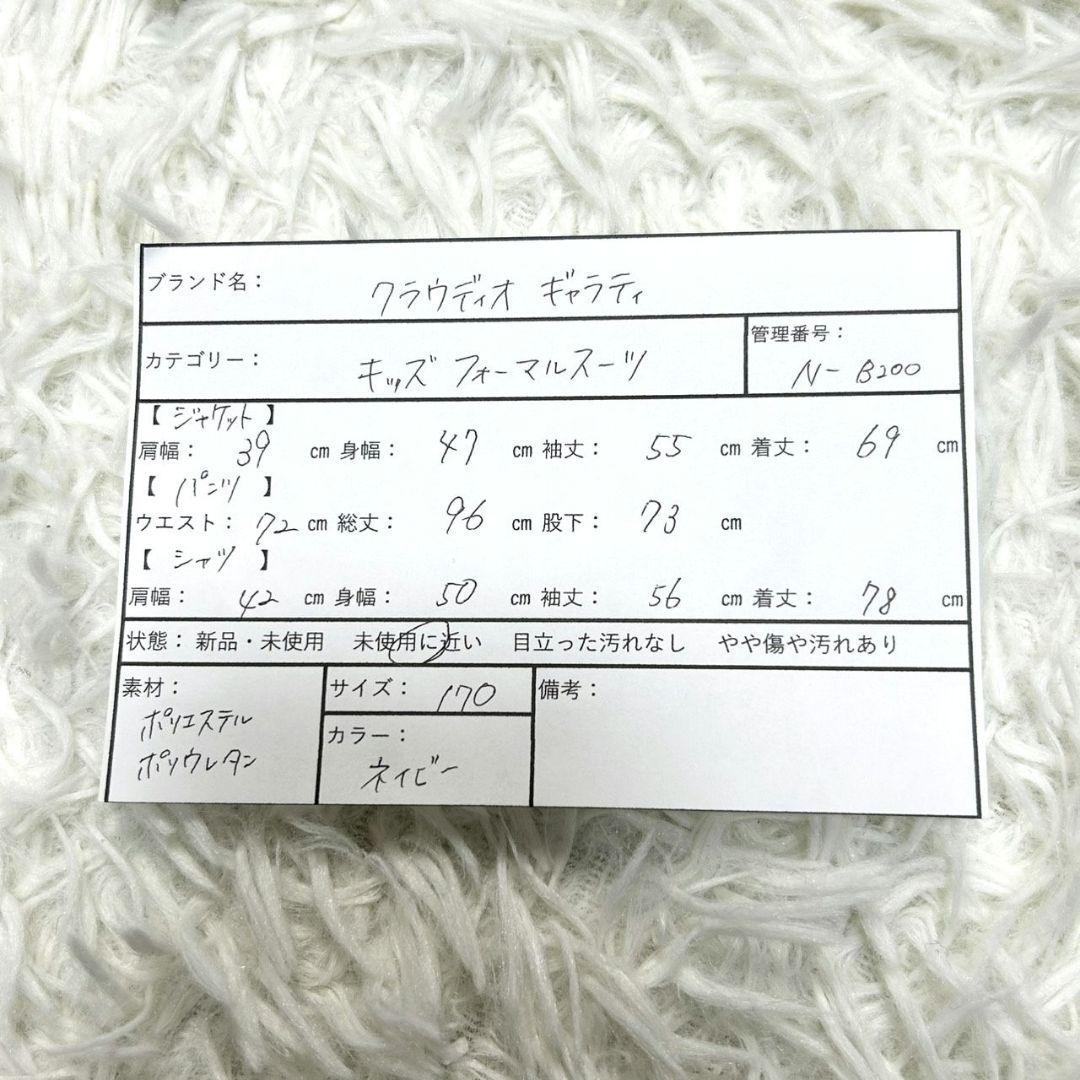 ブランド名： クラウディオ ギャラティ
カテゴリー： キッズ フォーマルスーツ
管理番号： N-B200
【 ジャケット 】
肩幅： 39 cm 身幅： 47 cm 袖丈： 55 cm 着丈： 69 cm
【 パンツ 】
ウエスト： 72 cm 総丈： 96 cm 股下： 73 cm
【 シャツ 】
肩幅： 42 cm 身幅： 50 cm 袖丈： 56 cm 着丈： 78 cm
状態： 新品・未使用 未使用に近い 目立った汚れなし やや傷や汚れあり
素材：
ポリエステル
ポリウレタン
サイズ： 170
カラー：
ネイビー
備考：